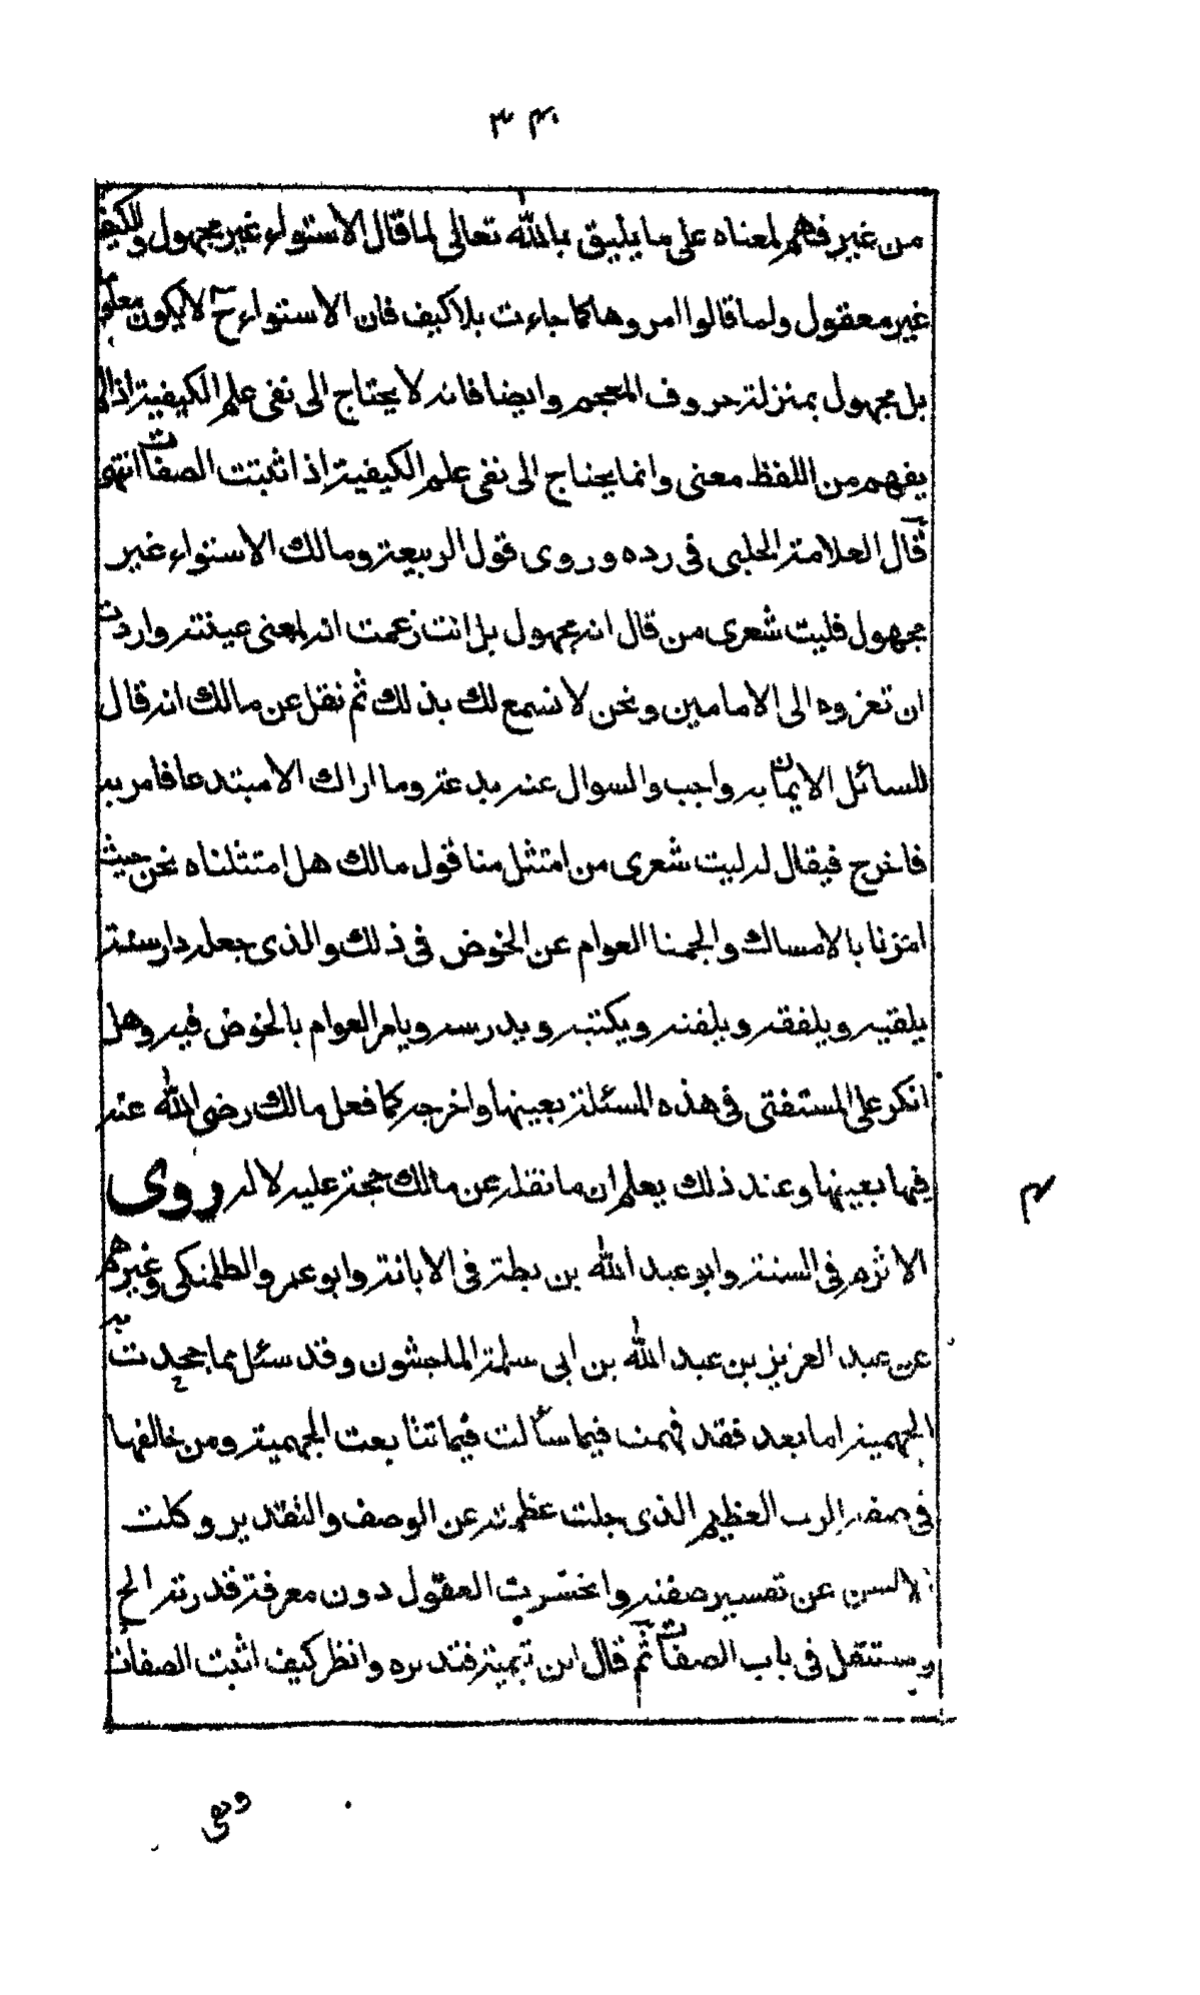 ٣٤
من غير فهم لمعناه على ما يليق بالله تعالى لما قال الاستواء غير مجهول والكيف
غير معقول ولما قالوا امروها كما جاءت بلا كيف فان الاستواء ح لا يكون معلوما
بل مجهول بمنزلة حروف المعجم وايضا فانه لا يحتاج الى نفى علم الكيفية اذا لم
يفهم من اللفظ معنى وانما يحتاج الى نفى علم الكيفية اذا اثبتت الصفات انتهى
قال العلامة الحلبى فى رده وروى قول الربيعة ومالك الاستواء غير
مجهول فليت شعرى من قال انه مجهول بل انت زعمت انه لمعنى عينته واردت
ان تعزوه الى الامامين ونحن لا نسمع لك بذلك ثم نقل عن مالك انه قال
للسائل الايمان به واجب والسوال عنه بدعة وما اراك الا مبتدعا فامر به
فاخرج فيقال له ليت شعرى من امتثل منا قول مالك هل امتثلناه نحن حيث
امرنا بالامساك والجمنا العوام عن الخوض فى ذلك والذى جعله دراسته
يلقيه ويلفقه ويلقنه ويكتبه ويدرسه ويامر العوام بالخوض فيه وهل
انكر على المستفتى فى هذه المسئلة بعينها واخرجه كما فعل مالك رضى الله عنه
فيها بعينها وعند ذلك يعلم ان ما نقله عن مالك حجة عليه لا له روى
الاثرم فى السنة وابو عبد الله بن بطة فى الابانة وابو عمر والطلمنكى وغيرهم
عن عبد العزيز بن عبد الله بن ابى سلمة الماجشون وقد سئل مما جحدت به
الجهمية اما بعد فقد فهمت فيما سألت فيما تتابعت الجهمية ومن خالفها
فى صفة الرب العظيم الذى جلت عظمته عن الوصف والتقدير وكلت
الالسن عن تفسير صفته وانحسرت العقول دون معرفة قدرته الخ
وسننقل فى باب الصفات ثم قال ابن تيمية فتدبره وانظر كيف اثبت الصفات
ونفى